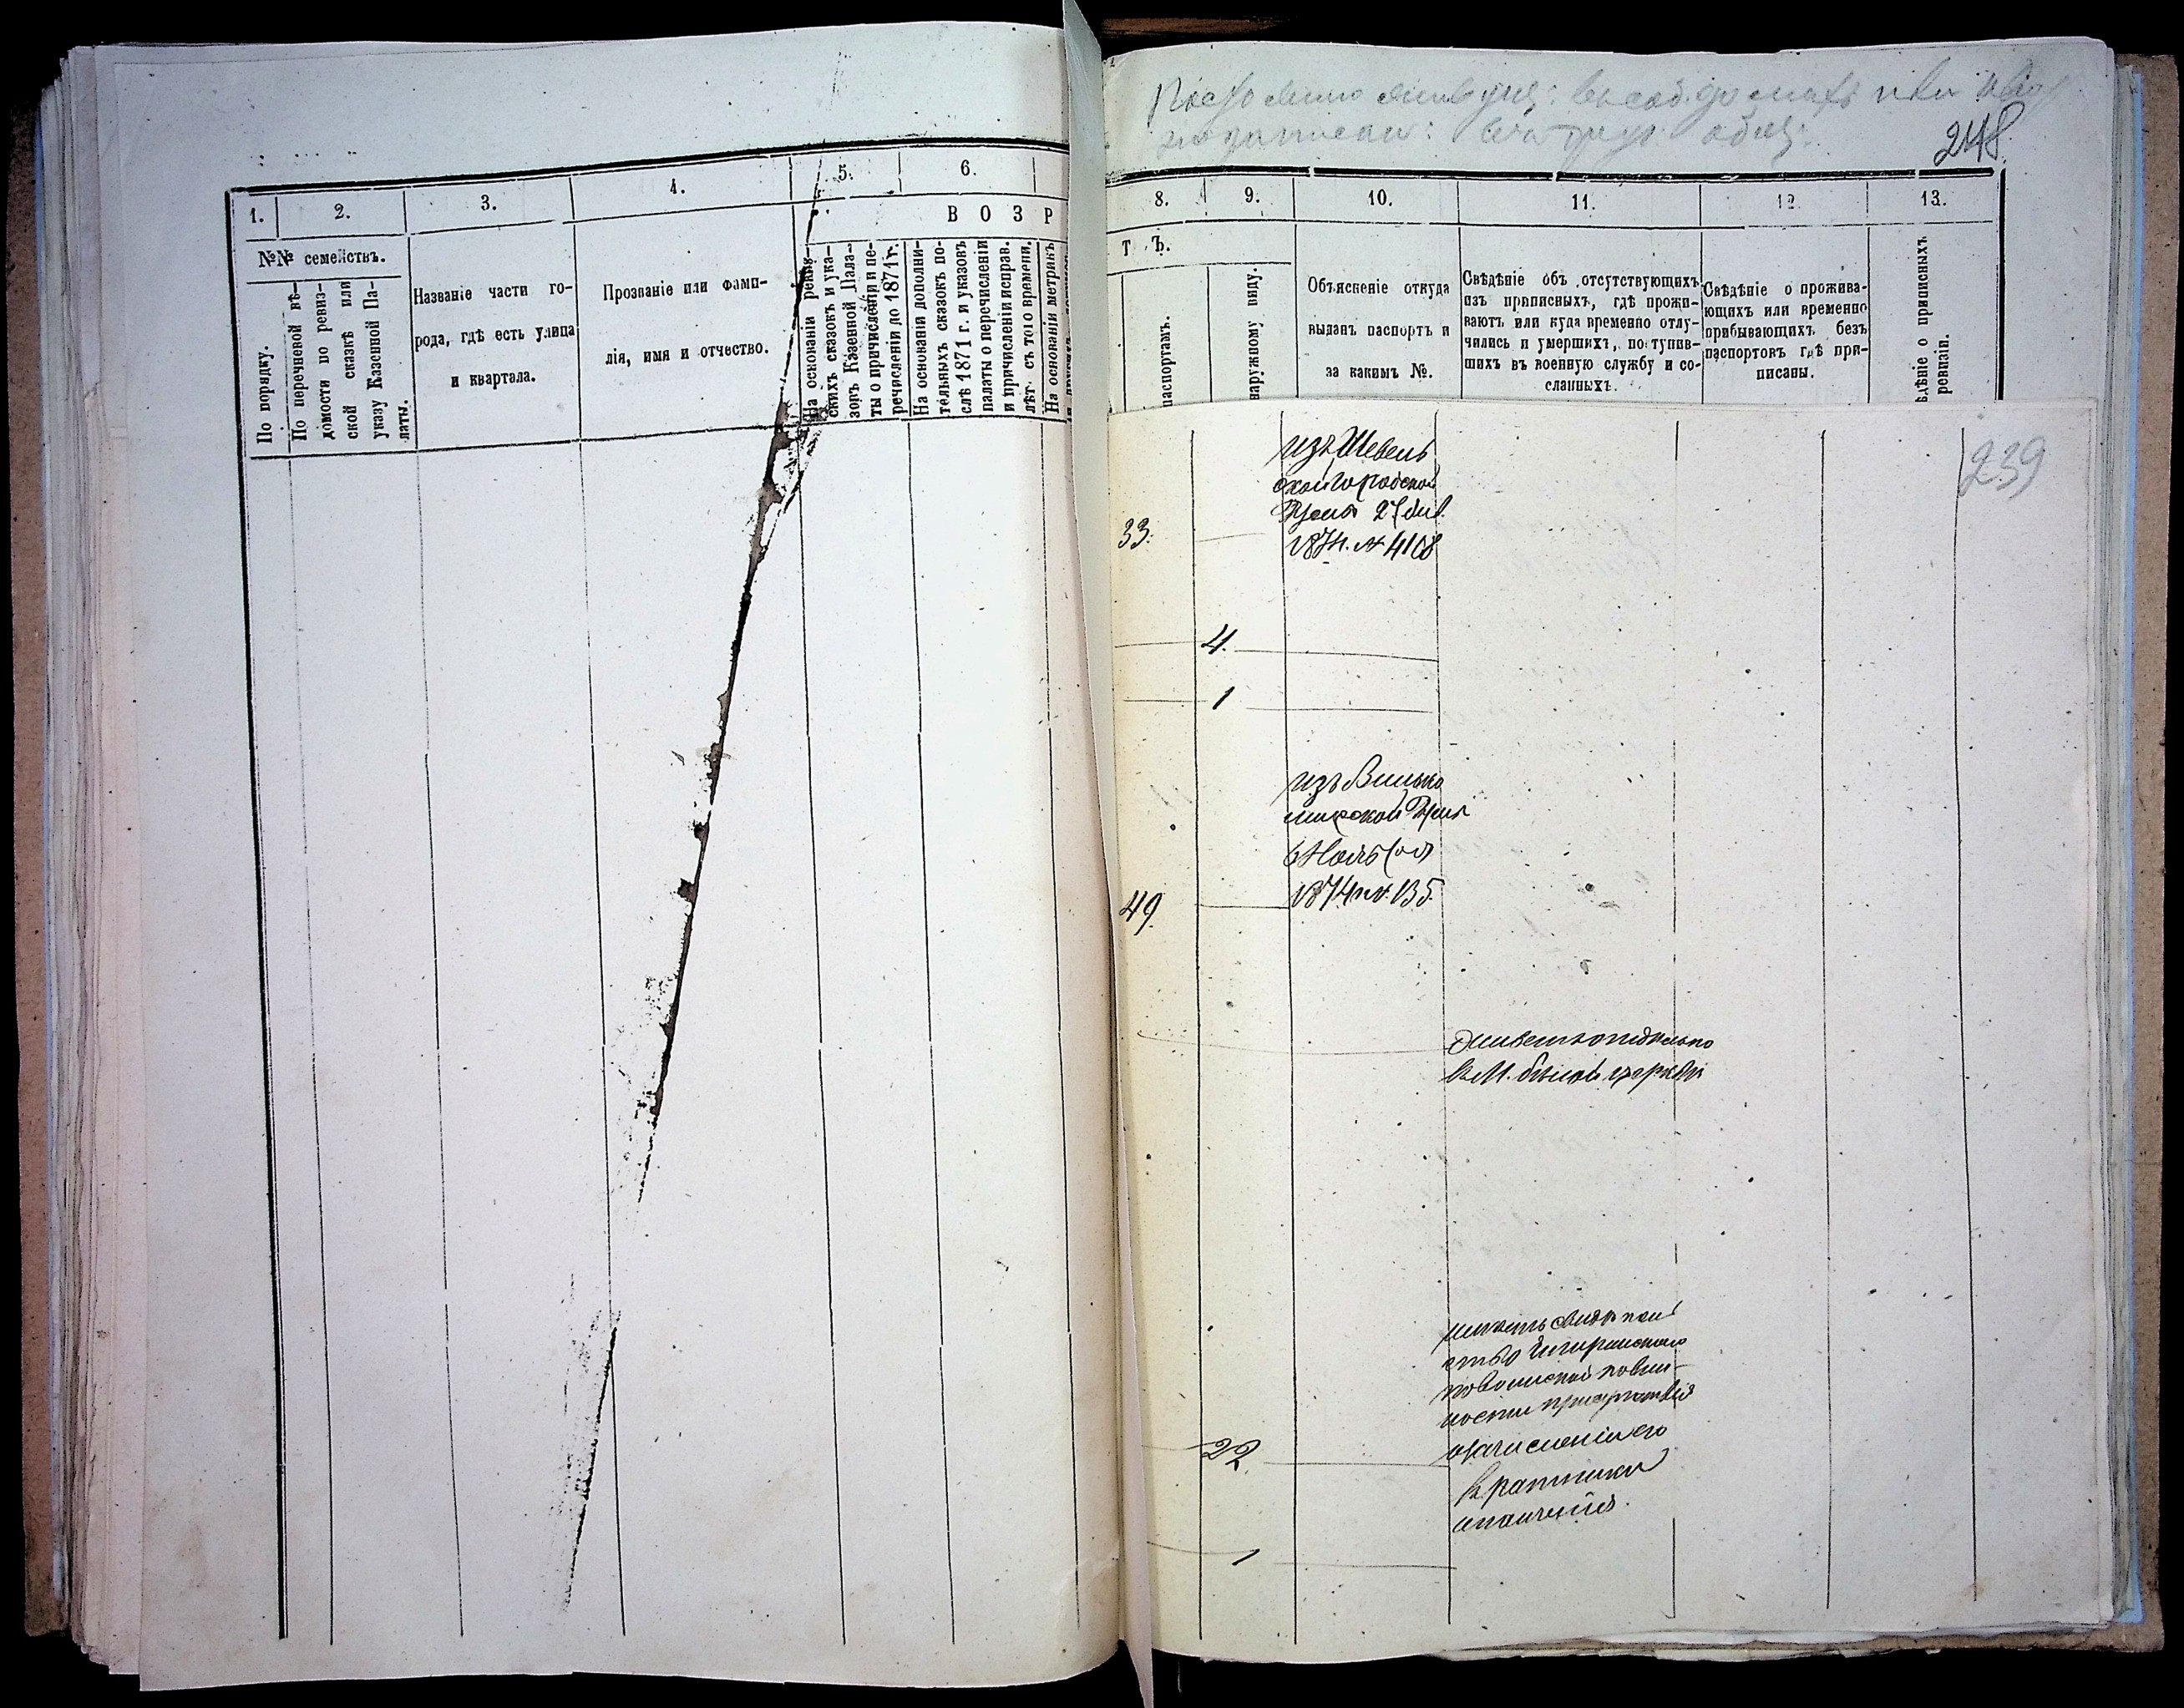 248.
1. 2. 3. 4. 5. 6.
В О З Р
№№ семействъ.
По порядку.
По перечневой вѣ-
домости по ревиз-
ской сказкѣ или
указу Казенной Па-
латы.
Названіе части го-
рода, гдѣ есть улица
и квартала.
Прозваніе или фами-
лія, имя и отчество.
На основаніи ревиз-
скихъ сказокъ и ука-
зовъ Казенной Пала-
ты о причисленіи и пе-
речисленіи до 1871 г.
На основаніи дополни-
тельныхъ сказокъ по-
слѣ 1871 г. и указовъ
палаты о перечисленіи
и причисленіи исправ.
лѣт. съ того времени.
На основаніи метрикъ
8. 9. 10. 11. 12. 13.
Т Ъ.
паспортамъ.
наружному виду.
Объясненіе откуда
выданъ паспортъ и
за какимъ №.
Свѣдѣніе объ отсутствующихъ
изъ приписныхъ, гдѣ прожи-
ваютъ или куда временно отлу-
чились и умершихъ, поступив-
шихъ въ военную службу и со-
сланныхъ.
Свѣдѣніе о прожива-
ющихъ или временно
прибывающихъ безъ
паспортовъ гдѣ при-
писаны.
ѣдѣніе о приписныхъ
ревизіи.
239
изъ Шевель
ской городской
1874. № 4108
33.
4.
1
изъ Вилько
мирской
1874 № 135.
49.
живетъ отдѣльно
въ М. бѣлой церкви
имѣетъ свидѣтель
ство Чигиринскаго
по воинской повин-
ности присутствія
о зачисленіи его
въ ратники
ополченія.
22.
1